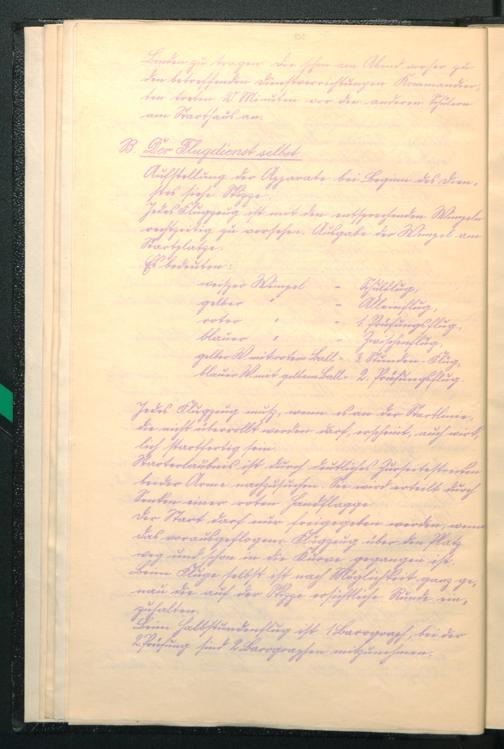 Binden zu tragen. Die schon am Abend vorher zu
den betreffenden Dienstverrichtungen Kommandier-
ten treten 20 Minuten vor den anderen Schülern
am Starthaus an.
B. Der Flugdienst selbst.
Aufstellung der Apparate bei Beginn des Dien-
stes siehe Skizze.
Jedes Flugzeug ist mit den entsprechenden Wimpeln
rechtzeitig zu versehen. Ausgabe der Wimpel am
Startplatze.
Es bedeuten:
weisser Wimpel - Schulflug,
gelber " - Alleinflug,
roter " - 1. Prüfungsflug,
blauer " - Zwischenflug,
gelber W. mit rotem Ball - ½ Stunden-Flug,
blauer W. mit gelbem Ball - 2. Prüfungsflug.
Jedes Flugzeug muß, wenn es an der Startlinie,
die nicht überrollt werden darf, erscheint, auch wirk-
lich startfertig sein.
Starterlaubnis ist durch deutliches Hochstrecken
beider Arme nachzusuchen. Sie wird erteilt durch
Senken einer roten Handflagge.
Der Start darf nur freigegeben werden, wenn
das vorausgeflogene Flugzeug über den Platz
weg und schon in die Kurve gegangen ist.
Beim Fluge selbst ist nach Möglichkeit ganz ge-
nau die auf der Skizze ersichtliche Runde ein-
zuhalten.
Beim Halbstundenflug ist 1 Barograph, bei der
2. Prüfung sind 2 Barographen mitzunehmen.